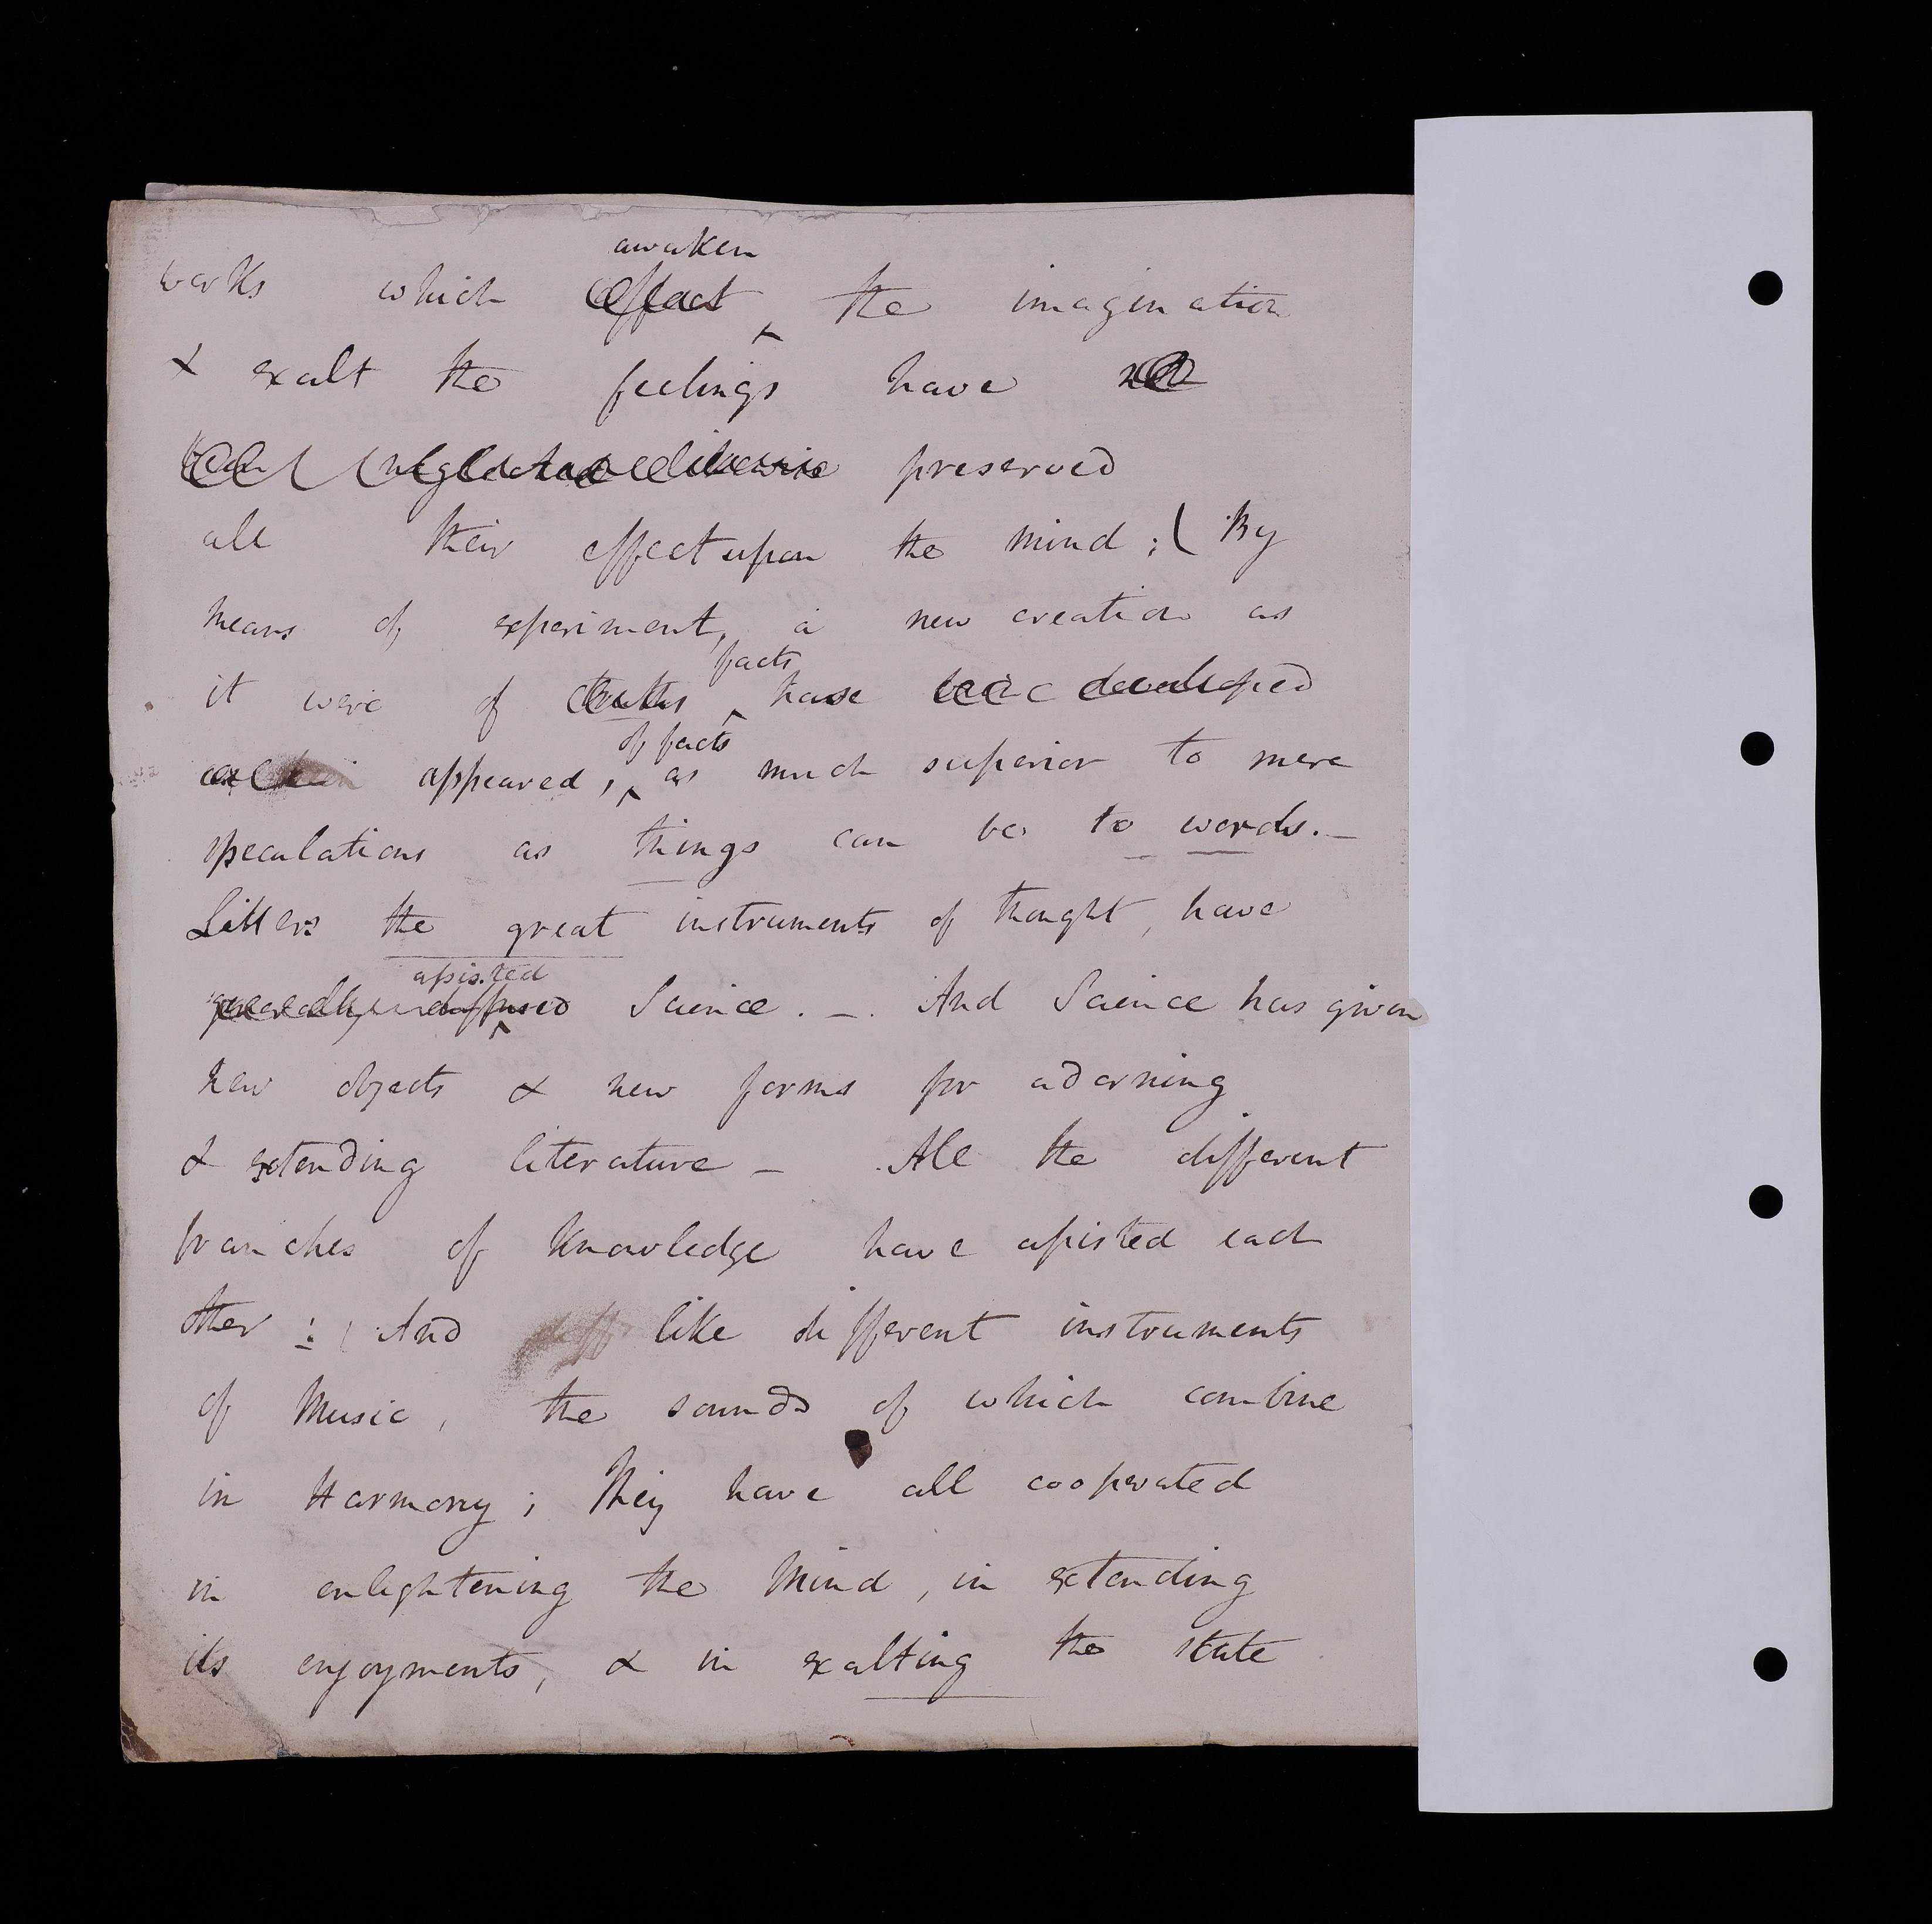 awaken
works which affect the imagination
& exalt the feelings have not
been neglected likewise preserved
all their effect upon the mind; ( By
means of experiment, a new creation as
facts
it were of truths have been developed
of facts
appeared, as much superior to mere
speculations as things can be to words. —
Letters the great instruments of thought, have
assisted
generally diffused Science. —. And Science has given
new objects & new forms for adorning
& extending literature — All the different
branches of knowledge have assisted each
other : ( And diff like different instruments
of Music, the sounds of which combine
in Harmony; They have all cooperated
in enlightening the Mind, in extending
its enjoyments, & in exalting the state